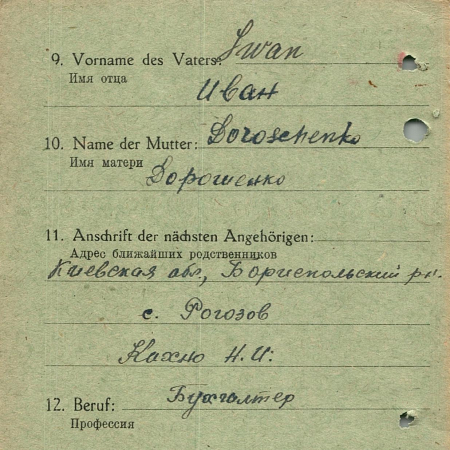 9. Vorname des Vaters: Iwan
Имя отца
Иван
10. Name der Mutter: Doroschenko
Имя матери
Дорошенко
11. Anschrift der nächsten Angehörigen:
Адрес ближайших родственников
Киевская обл, Бориспольский рн.
с. Рогозов
Кахно Н.И.
12. Beruf: Бухгалтер
Профессия